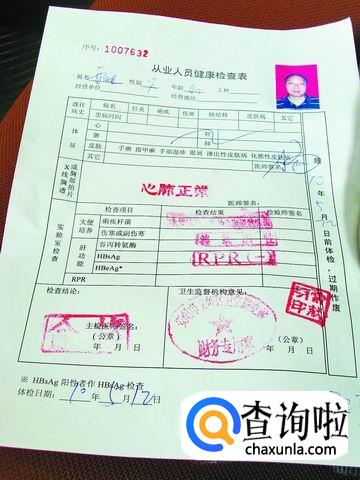 序号: 1007632
从业人员健康检查表
姓名 性别 年龄 工种
经营单位 经营地址
既往病史 病名 肝炎 痢疾 伤寒 肺结核 皮肤病 其它
患病时间
体征 心 肝
脾 肺
皮肤 手癣 指甲癣 手部湿疹 银屑 渗出性皮肤病 化脓性皮肤病
其它
X线胸透或胸部拍片
心肺正常
医师签名:
实验室检查 检查项目 检查结果 检验师签名:
大便培养 痢疾杆菌
伤寒或副伤寒
肝功能 谷丙转氨酶
HBsAg
HBeAg*
RPR
RPR(-)
限10年5月 日前体检,过期作废
检查结论: 卫生监督机构意见:
主检医师签名:
(公章) (公章)
年 月 日 年 月 日
财务专用章
※ HBsAg 阳性者作 HBsAg 检查
体检日期: 10年5月12日
查询啦
chaxunla.com